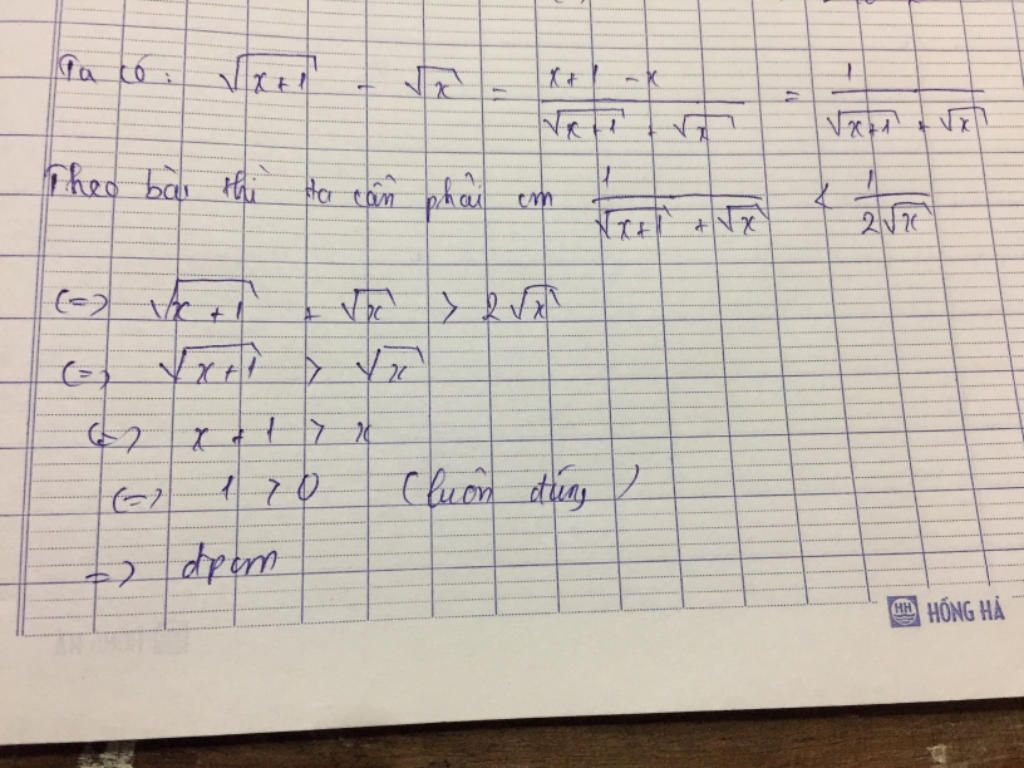 Ta có: √(x+1) - √x = (x+1-x)/(√(x+1) + √x) = 1/(√(x+1) + √x)
Theo bài thì ta cần phải cm 1/(√(x+1) + √x) < 1/(2√x)
(=) √(x+1) + √x > 2√x
(=) √(x+1) > √x
(=) x + 1 > x
(=) 1 > 0 (luôn đúng)
=) đpcm
HH HỒNG HÀ